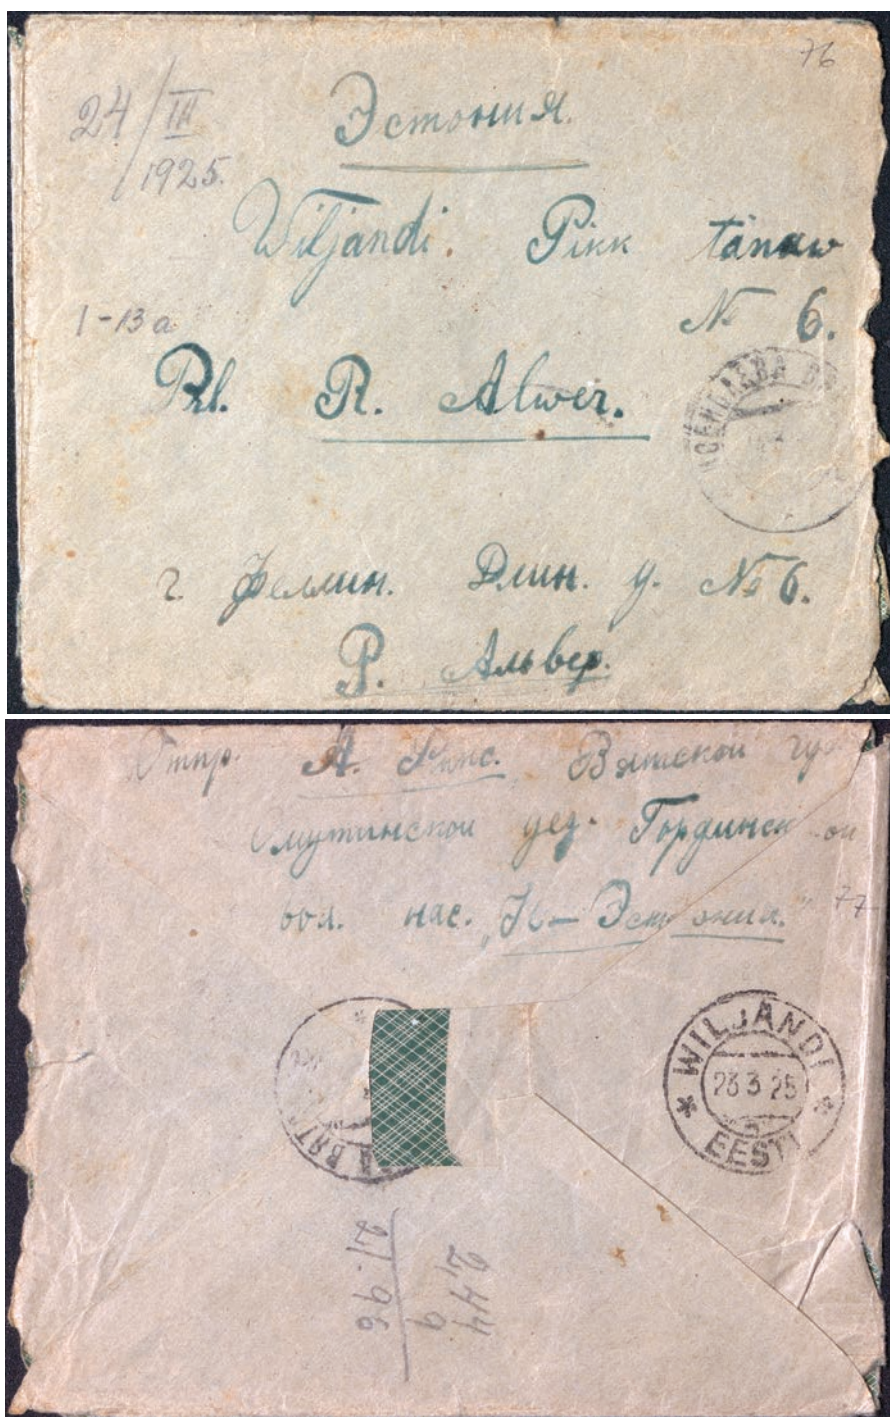 76
24/III
1925.
Эстония.
Wiljandi. Pikk tänaw
№ 6.
I-13a
Prl. R. Alwer.
г. Феллин. Длин. у. № 6.
Р. Альвер.
Отпр. А. Вятской гу
Омутинской уез. Гординск ой
вол. нас. „Н.-Эстония."
77
WILJANDI
23 3 25
EESTI
2,44
9
21.96